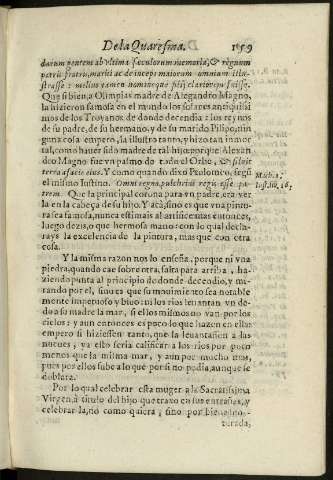 De la Quaresma. 159
darum gentem ab vltima sæculorum memoria, & regnum
patris fratris, mariti ac deinceps maiorum omnium illu-
strasse: nullius tamen nomine que filij clarior en fuisse.
Que si bien a Olimpias madre de Alegandro Magno,
la hizieron famosa en el mundo los solares antiquisi
mos de los Troyanos de donde decendia: los reynos
de su padre, de su hermano, y de su marido Filipo, nin
guna cosa empero, la ilustra tanto, y hizo tan inmor
tal, como hauer sido madre de tal hijo: porque Alexan
dro Magno fue vn palmo de todo el Orbe, & siluit
terra afacie eius. Y como quando dixo Ptolomeo, segũ
el mismo Iustino. Omni regno, pulchrius regis esse pa-
trem. Que la principal corona para vn padre, era ver
la en la cabeça de su hijo. Y acà, sino es que vna pintu-
ra sea famosa, nunca estimais al artifice: mas entonces,
luego dezis, o que hermosa mano: con lo qual decla-
rays la excelencia de la pintura, mas que con otra
cosa.
Y la misma razon nos lo enseña, porque ni vna
piedra, quando cae sobre otra, salta para arriba, ha-
ziendo punta al principio de donde decendio, y mi-
rando por el, sino es que su mouimiento sea notable
mente impetuoso y biuo: ni los rios leuantan vn de-
do a su madre la mar, si ellos mismos no van por los
cielos: y aun entonces es poco lo que hazen en ella:
empero si hiziessen tanto, que la leuantassen a las
nuues, ya esto seria calificar a los rios por poco
menos que la misma mar, y aun por mucho mas,
pues por ellos sube a lo que por si no podia, aunque se
doblara.
Por lo qual celebrar esta muger a la Sacratissima
Virgen, à titulo del hijo que traxo en sus entrañas, y
celebrarla, no como quiera, sino por bienauen-
turada,
Mach. 1;
Iust. lib. 16,